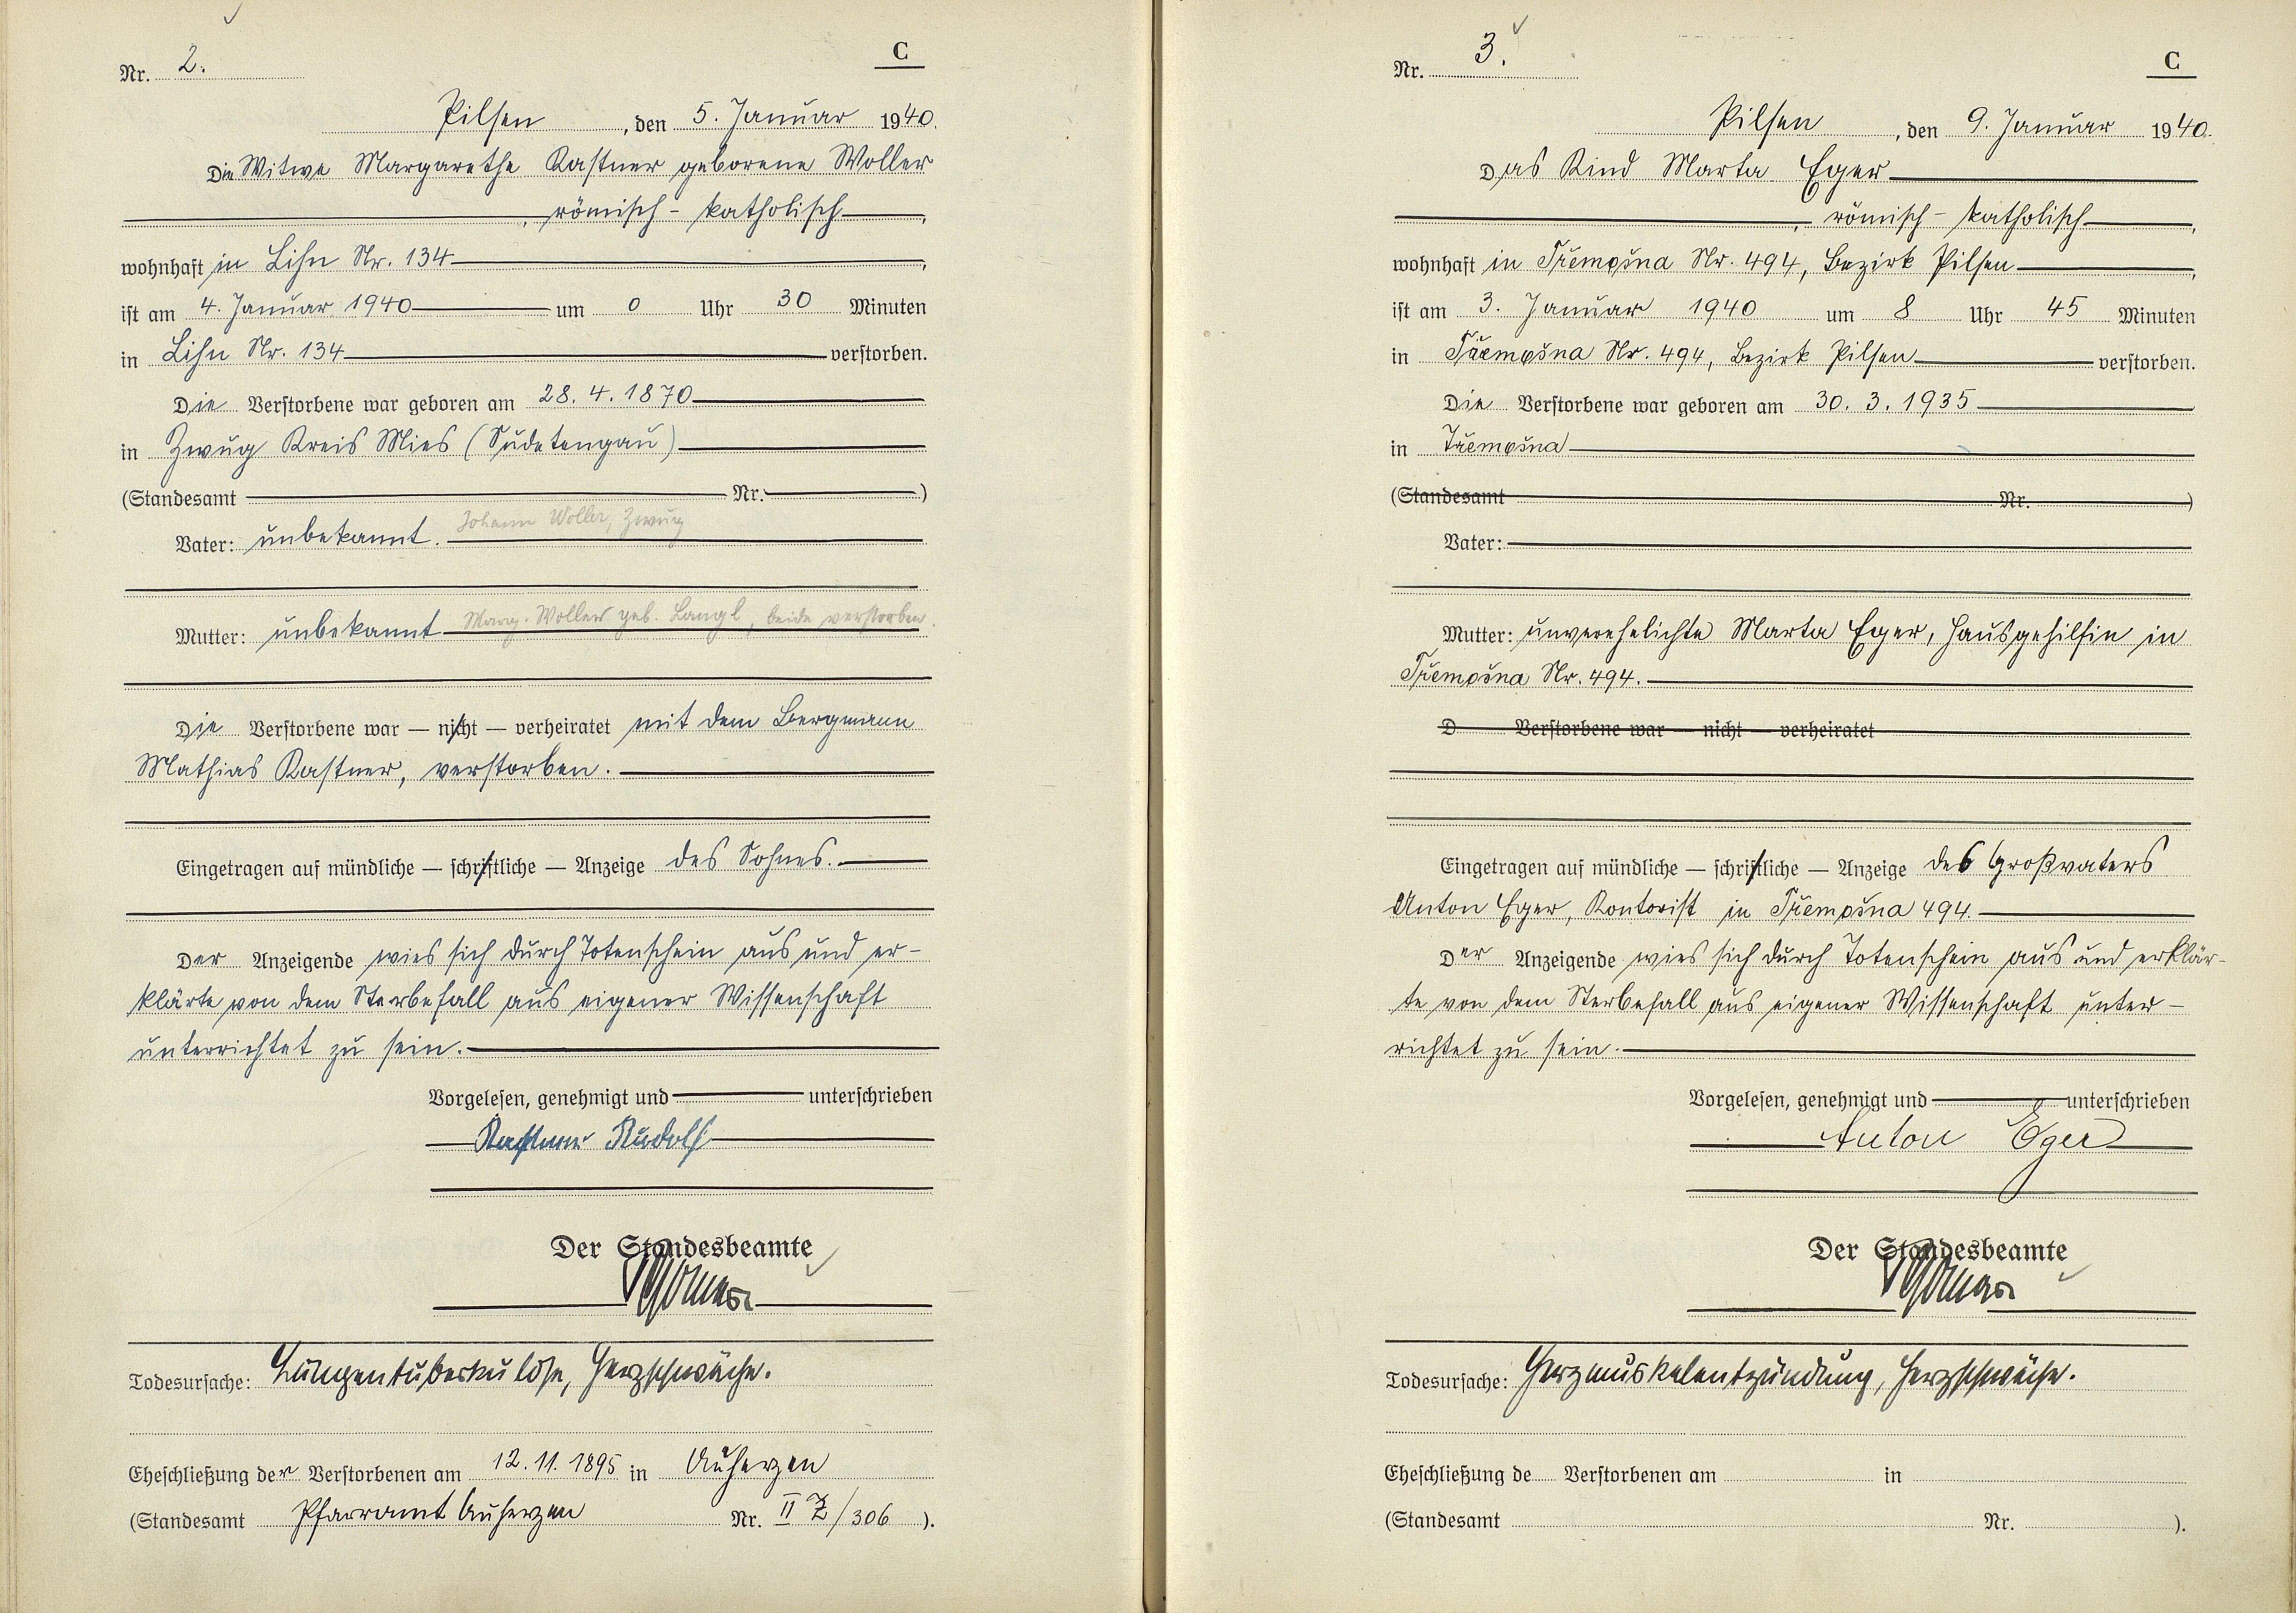 Nr. 2.
C
Pilsen, den 5. Januar 1940.
Die Witwe Margarethe Kastner geborene Woller
, römisch - katholisch,
wohnhaft in Lihn Nr. 134,
ist am 4. Januar 1940 um 0 Uhr 30 Minuten
in Lihn Nr. 134 verstorben.
Die Verstorbene war geboren am 28. 4. 1870
in Zwug Kreis Mies (Sudetengau)
(Standesamt Nr. )
Johann Woller, Zwug
Vater: unbekannt.
Marg. Woller geb. Langl, beide verstorben.
Mutter: unbekannt
Die Verstorbene war — nicht — verheiratet mit dem Bergmann
Mathias Kastner, verstorben.
Eingetragen auf mündliche — schriftliche — Anzeige des Sohnes.
Der Anzeigende wies sich durch Totenschein aus und er-
klärte von dem Sterbefall aus eigener Wissenschaft
unterrichtet zu sein.
Vorgelesen, genehmigt und unterschrieben
Kastner Rudolf
Der Standesbeamte
Todesursache: Lungentuberkulose, Herzschwäche.
Eheschließung der Verstorbenen am 12. 11. 1895 in Auherzen
(Standesamt Pfarramt Auherzen Nr. II Z/306 ).
Nr. 3.
C
Pilsen, den 9. Januar 1940.
Das Kind Marta Eger
, römisch - katholisch,
wohnhaft in Třemošna Nr. 494, Bezirk Pilsen,
ist am 3. Januar 1940 um 8 Uhr 45 Minuten
in Třemošna Nr. 494, Bezirk Pilsen verstorben.
Die Verstorbene war geboren am 30. 3. 1935
in Třemošna
(Standesamt Nr. )
Vater:
Mutter: unverehelichte Marta Eger, Hausgehilfin in
Třemošna Nr. 494.
D Verstorbene war — nicht — verheiratet
Eingetragen auf mündliche — schriftliche — Anzeige des Großvaters
Anton Eger, Kontorist in Třemošna 494.
Der Anzeigende wies sich durch Totenschein aus und erklär-
te von dem Sterbefall aus eigener Wissenschaft unter-
richtet zu sein.
Vorgelesen, genehmigt und unterschrieben
Anton Eger
Der Standesbeamte
Todesursache: Herzmuskelentzündung, Herzschwäche.
Eheschließung de Verstorbenen am in
(Standesamt Nr. ).